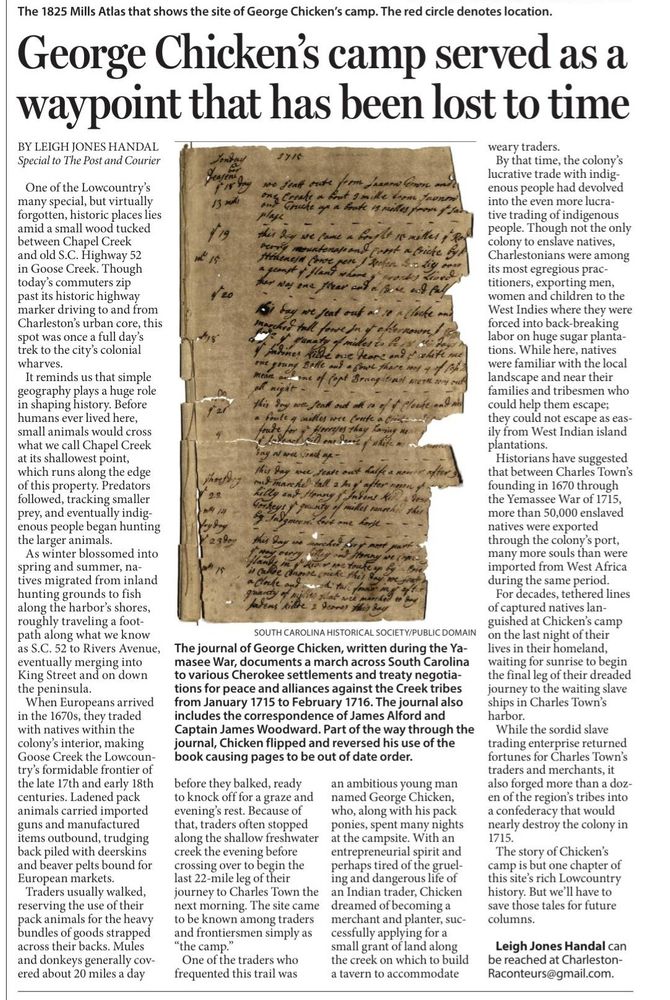 The 1825 Mills Atlas that shows the site of George Chicken's camp. The red circle denotes location.
George Chicken's camp served as a
waypoint that has been lost to time
BY LEIGH JONES HANDAL
Special to The Post and Courier
One of the Lowcountry's
many special, but virtually
forgotten, historic places lies
amid a small wood tucked
between Chapel Creek
and old S.C. Highway 52
in Goose Creek. Though
today's commuters zip
past its historic highway
marker driving to and from
Charleston's urban core, this
spot was once a full day's
trek to the city's colonial
wharves.
It reminds us that simple
geography plays a huge role
in shaping history. Before
humans ever lived here,
small animals would cross
what we call Chapel Creek
at its shallowest point,
which runs along the edge
of this property. Predators
followed, tracking smaller
prey, and eventually indig-
enous people began hunting
the larger animals.
As winter blossomed into
spring and summer, na-
tives migrated from inland
hunting grounds to fish
along the harbor's shores,
roughly traveling a foot-
path along what we know
as S.C. 52 to Rivers Avenue,
eventually merging into
King Street and on down
the peninsula.
When Europeans arrived
in the 1670s, they traded
with natives within the
colony's interior, making
Goose Creek the Lowcoun-
try's formidable frontier of
the late 17th and early 18th
centuries. Ladened pack
animals carried imported
guns and manufactured
items outbound, trudging
back piled with deerskins
and beaver pelts bound for
European markets.
Traders usually walked,
reserving the use of their
pack animals for the heavy
bundles of goods strapped
across their backs. Mules
and donkeys generally cov-
ered about 20 miles a day
1715
SOUTH CAROLINA HISTORICAL SOCIETY/PUBLIC DOMAIN
The journal of George Chicken, written during the Ya-
masee War, documents a march across South Carolina
to various Cherokee settlements and treaty negotia-
tions for peace and alliances against the Creek tribes
from January 1715 to February 1716. The journal also
includes the correspondence of James Alford and
Captain James Woodward. Part of the way through the
journal, Chicken flipped and reversed his use of the
book causing pages to be out of date order.
before they balked, ready
to knock off for a graze and
evening's rest. Because of
that, traders often stopped
along the shallow freshwater
creek the evening before
crossing over to begin the
last 22-mile leg of their
journey to Charles Town the
next morning. The site came
to be known among traders
and frontiersmen simply as
"the camp."
One of the traders who
frequented this trail was
an ambitious young man
named George Chicken,
who, along with his pack
ponies, spent many nights
at the campsite. With an
entrepreneurial spirit and
perhaps tired of the gruel-
ing and dangerous life of
an Indian trader, Chicken
dreamed of becoming a
merchant and planter, suc-
cessfully applying for a
small grant of land along
the creek on which to build
a tavern to accommodate
weary traders.
By that time, the colony's
lucrative trade with indig-
enous people had devolved
into the even more lucra-
tive trading of indigenous
people. Though not the only
colony to enslave natives,
Charlestonians were among
its most egregious prac-
titioners, exporting men,
women and children to the
West Indies where they were
forced into back-breaking
labor on huge sugar planta-
tions. While here, natives
were familiar with the local
landscape and near their
families and tribesmen who
could help them escape;
they could not escape as eas-
ily from West Indian island
plantations.
Historians have suggested
that between Charles Town's
founding in 1670 through
the Yemassee War of 1715,
more than 50,000 enslaved
natives were exported
through the colony's port,
many more souls than were
imported from West Africa
during the same period.
For decades, tethered lines
of captured natives lan-
guished at Chicken's camp
on the last night of their
lives in their homeland,
waiting for sunrise to begin
the final leg of their dreaded
journey to the waiting slave
ships in Charles Town's
harbor.
While the sordid slave
trading enterprise returned
fortunes for Charles Town's
traders and merchants, it
also forged more than a doz-
en of the region's tribes into
a confederacy that would
nearly destroy the colony in
1715.
The story of Chicken's
camp is but one chapter of
this site's rich Lowcountry
history. But we'll have to
save those tales for future
columns.
Leigh Jones Handal can
be reached at Charleston-
Raconteurs@gmail.com.